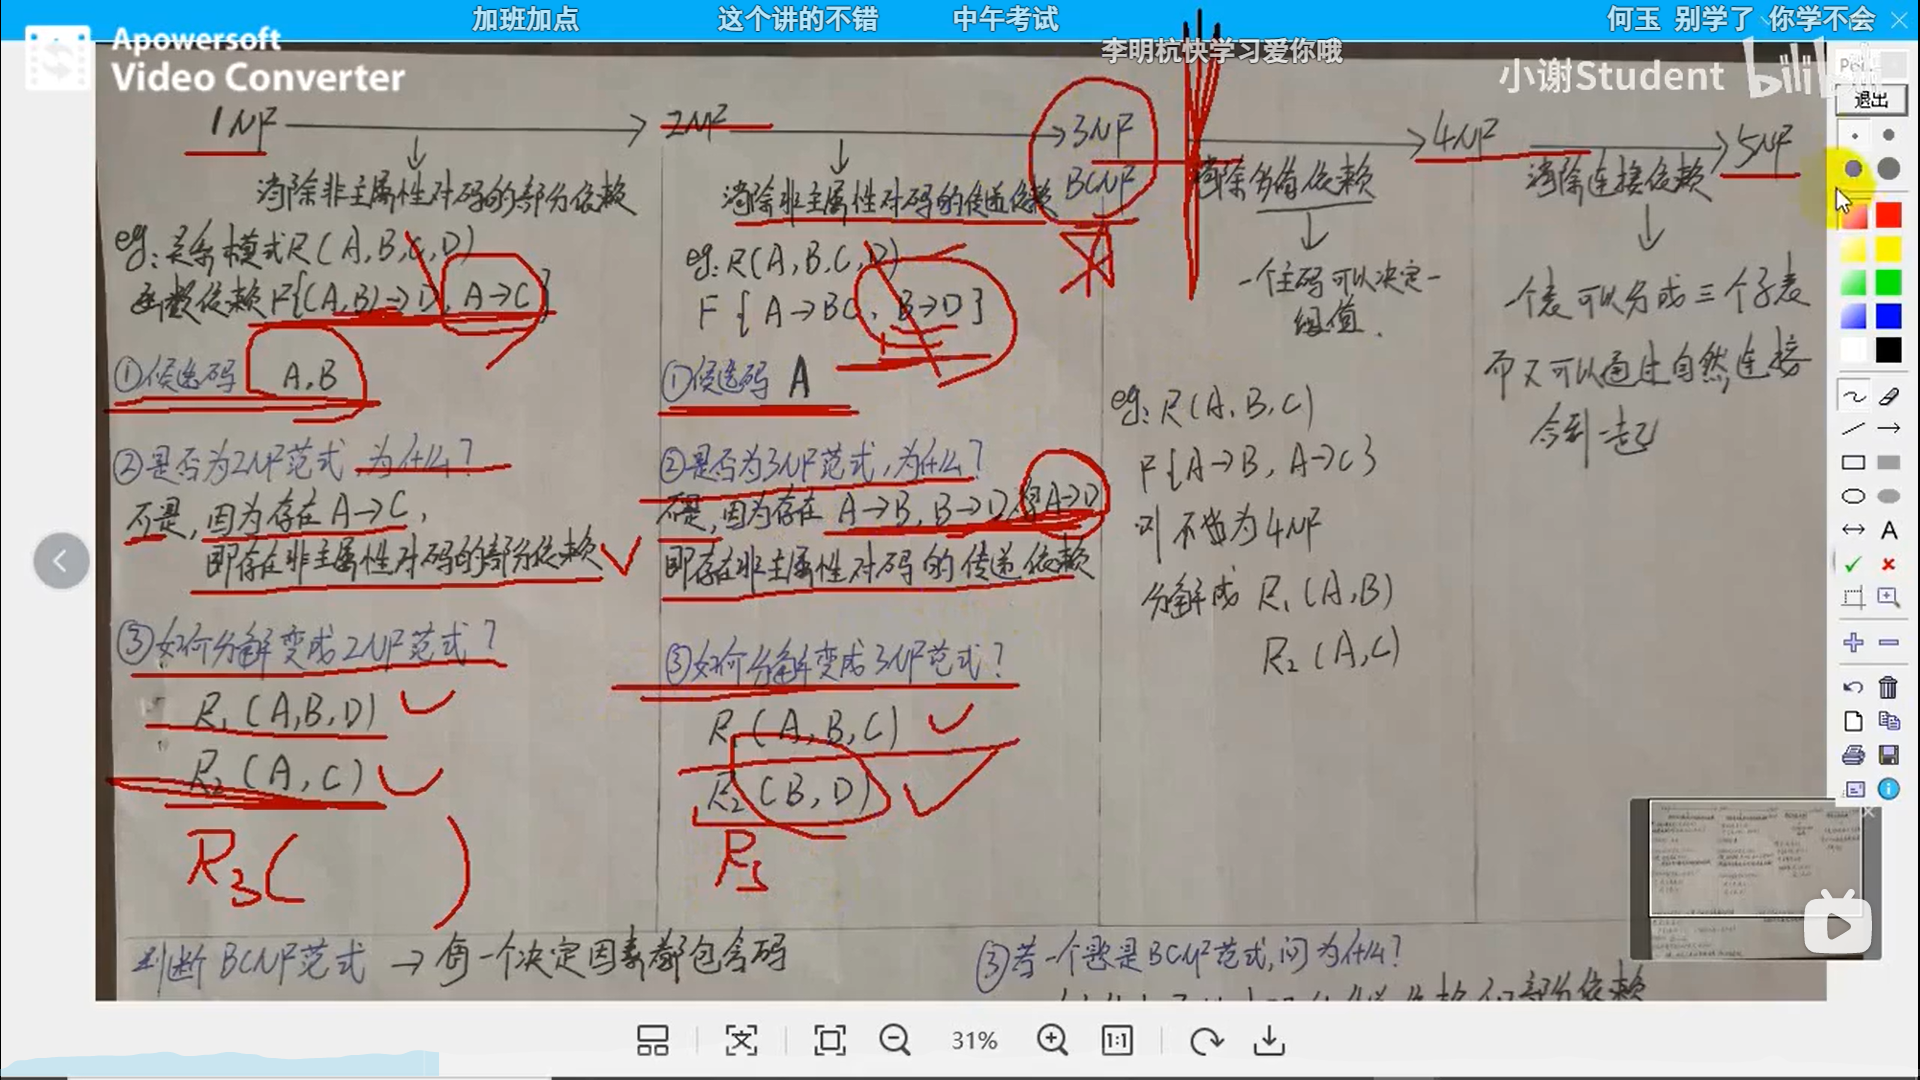 加班加点 这个讲的不错 中午考试 何玉 别学了 你学不会
李明杭快学习爱你哦
Apowersoft
Video Converter
小谢Student bilibili
退出
1NF
2NF
3NF
BCNF
4NF
5NF
消除非主属性对码的部分依赖
eg:关系模式R(A,B,C,D)
函数依赖F{(A,B)→D, A→C}
①候选码 A,B
②是否为2NF范式,为什么?
不是,因为存在A→C,
即存在非主属性对码的部分依赖
③如何分解变成2NF范式?
R₁(A,B,D)
R₂(A,C)
R₃( )
消除非主属性对码的传递依赖
eg:R(A,B,C,D)
F{A→BC, B→D}
①候选码 A
②是否为3NF范式,为什么?
不是,因为存在A→B,B→D,得A→D
即存在非主属性对码的传递依赖
③如何分解变成3NF范式?
R₁(A,B,C)
R₂(B,D)
消除多值依赖
一个主码可以决定一
组值.
eg:R(A,B,C)
F{A→B,A→C}
则不为4NF
分解成 R₁(A,B)
R₂(A,C)
消除连接依赖
一个表可以分成三个子表
而又可以通过自然连接
合到一起
判断BCNF范式→每一个决定因素都包含码
③若一个表是BCNF范式,问为什么?
31%
1:1